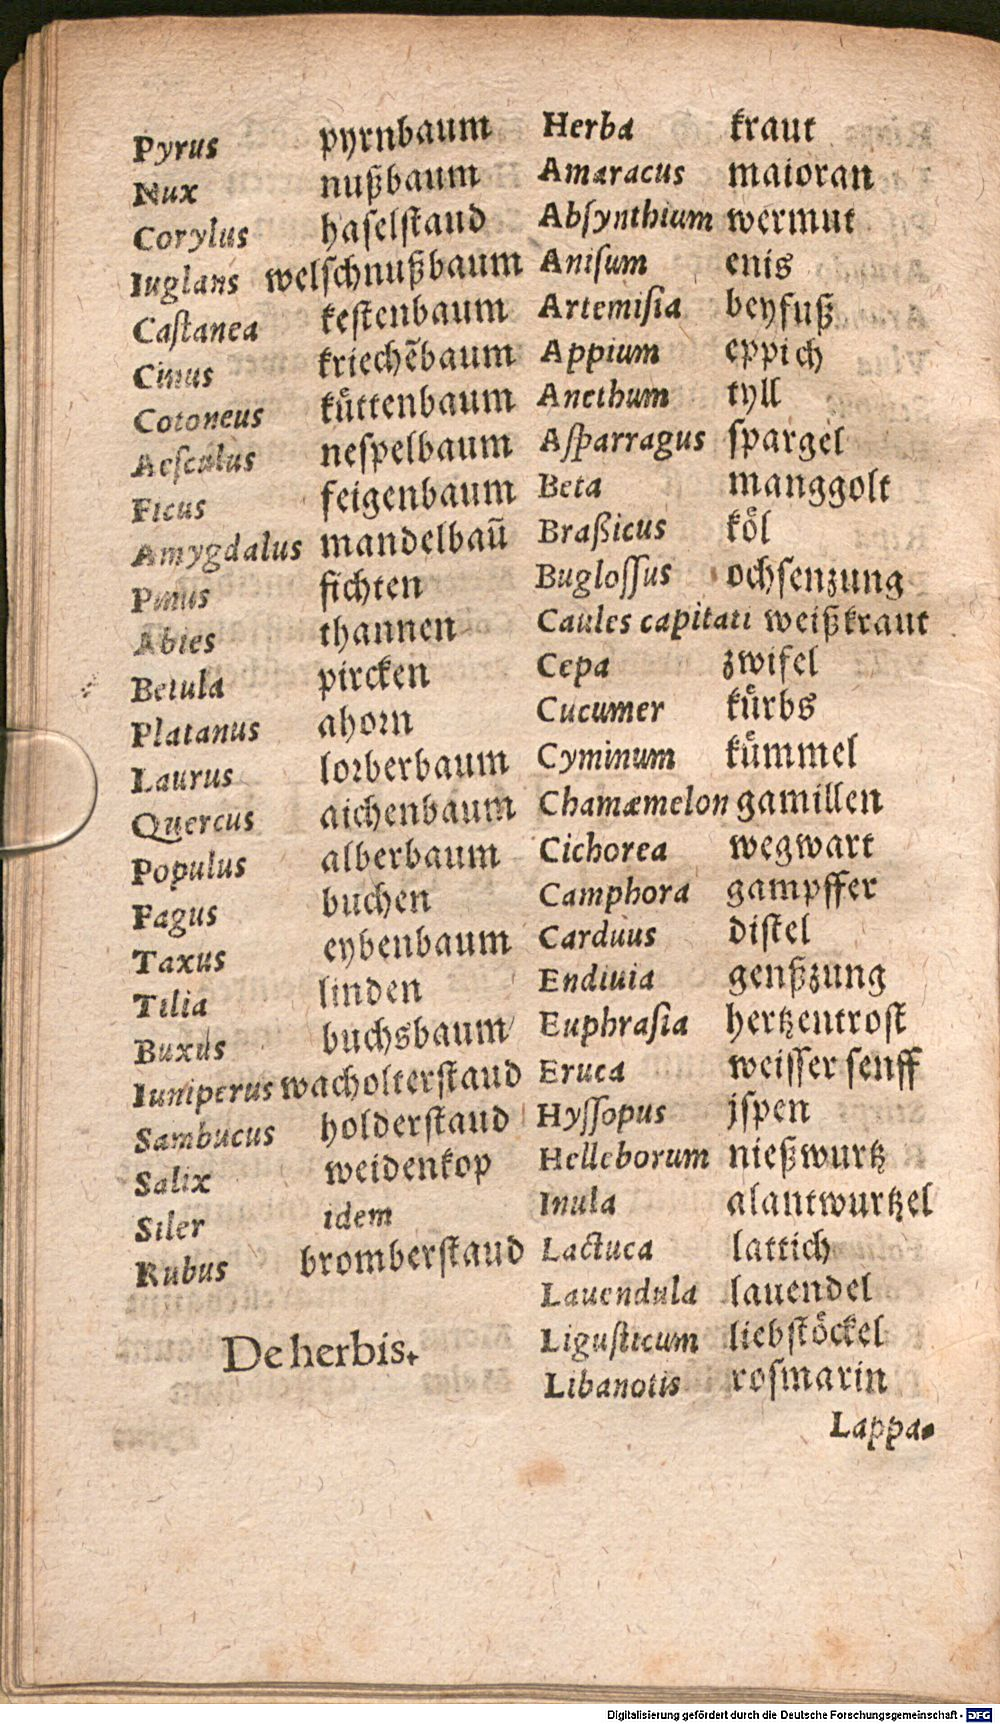 Pyrus pyrnbaum
Nux nußbaum
Corylus haselſtaud
Iuglans welſchnußbaum
Caſtanea keſtenbaum
Cinus kriechẽbaum
Cotoneus kuͤttenbaum
Aeſculus neſpelbaum
Ficus feigenbaum
Amygdalus mandelbaũ
Pinus fichten
Abies thannen
Betula pircken
Platanus ahoꝛn
Laurus loꝛberbaum
Quercus aichenbaum
Populus alberbaum
Fagus buchen
Taxus eybenbaum
Tilia linden
Buxus buchsbaum
Iuniperus wacholterſtaud
Sambucus holderſtaud
Salix weidenkop
Siler idem
Rubus bromberſtaud
De herbis.
Herba kraut
Amaracus maioran
Abſynthium wermut
Aniſum enis
Artemiſia beyfuß
Appium eppich
Anethum tyll
Aſparragus ſpargel
Beta manggolt
Braßicus koͤl
Bugloſſus ochſenzung
Caules capitati weißkraut
Cepa zwifel
Cucumer kuͤrbs
Cyminum kuͤmmel
Chamæmelon gamillen
Cichorea wegwart
Camphora gampffer
Carduus diſtel
Endiuia genßzung
Euphraſia hertzentroſt
Eruca weiſſer ſenff
Hyſſopus jſpen
Helleborum nießwurtz
Inula alantwurtzel
Lactuca lattich
Lauendula lauendel
Liguſticum liebſtoͤckel
Libanotis roſmarin
Lappa.
Digitalisierung gefördert durch die Deutsche Forschungsgemeinschaft - DFG